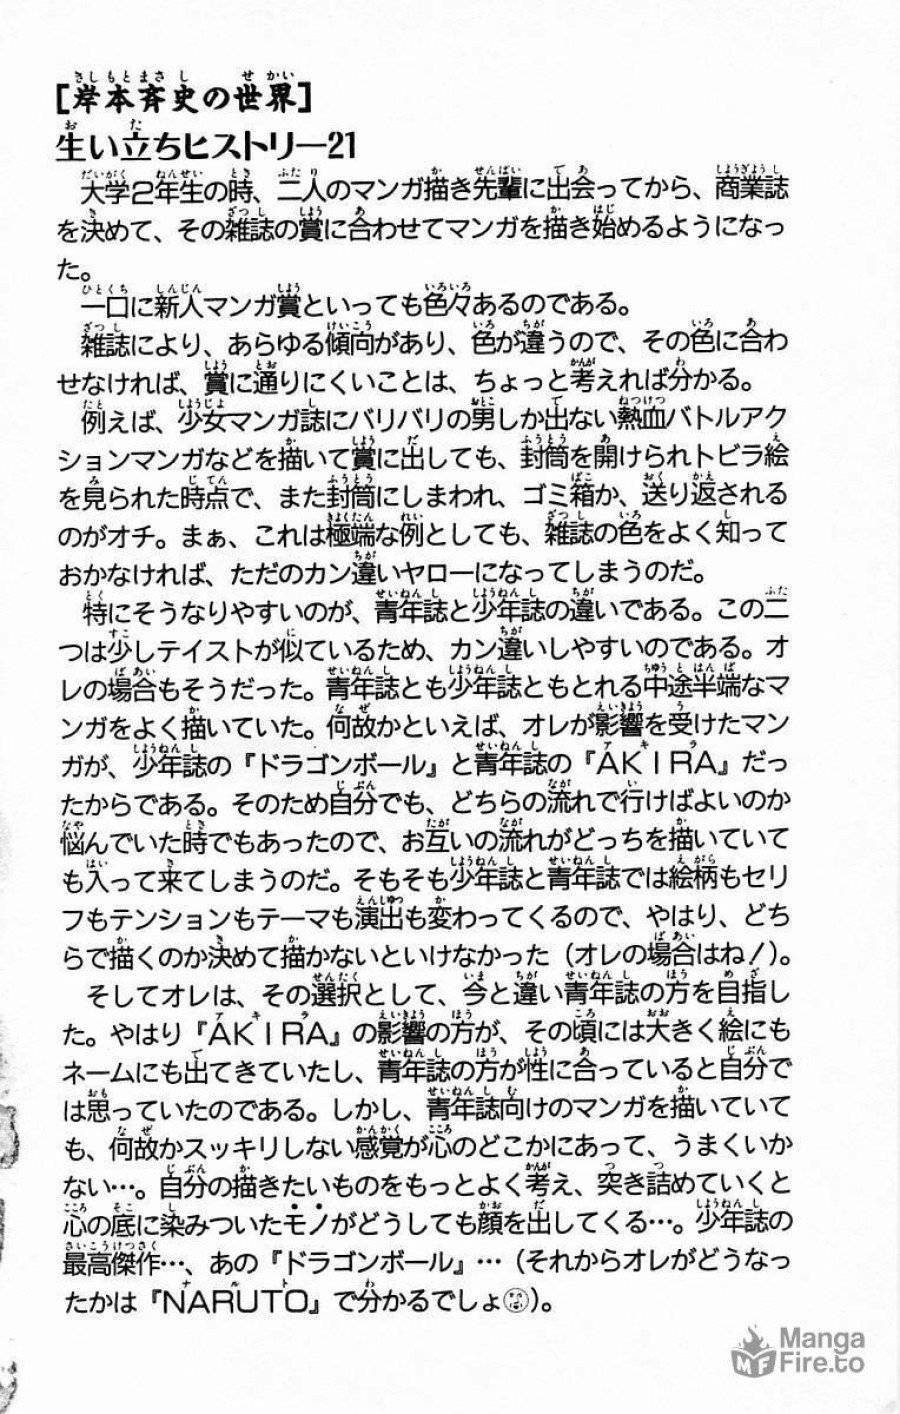 [岸本斉史の世界]
生い立ちヒストリー21
大学2年生の時、二人のマンガ描き先輩に出会ってから、商業誌
を決めて、その雑誌の賞に合わせてマンガを描き始めるようになっ
た。
一口に新人マンガ賞といっても色々あるのである。
雑誌により、あらゆる傾向があり、色が違うので、その色に合わ
せなければ、賞に通りにくいことは、ちょっと考えれば分かる。
例えば、少女マンガ誌にバリバリの男しか出ない熱血バトルアク
ションマンガなどを描いて賞に出しても、封筒を開けられトビラ絵
を見られた時点で、また封筒にしまわれ、ゴミ箱か、送り返される
のがオチ。まぁ、これは極端な例としても、雑誌の色をよく知って
おかなければ、ただのカン違いヤローになってしまうのだ。
特にそうなりやすいのが、青年誌と少年誌の違いである。この二
つは少しテイストが似ているため、カン違いしやすいのである。オ
レの場合もそうだった。青年誌とも少年誌ともとれる中途半端なマ
ンガをよく描いていた。何故かといえば、オレが影響を受けたマン
ガが、少年誌の『ドラゴンボール』と青年誌の『AKIRA』だっ
たからである。そのため自分でも、どちらの流れで行けばよいのか
悩んでいた時でもあったので、お互いの流れがどっちを描いていて
も入って来てしまうのだ。そもそも少年誌と青年誌では絵柄もセリ
フもテンションもテーマも演出も変わってくるので、やはり、どち
らで描くのか決めて描かないといけなかった（オレの場合はね！）。
そしてオレは、その選択として、今と違い青年誌の方を目指し
た。やはり『AKIRA』の影響の方が、その頃には大きく絵にも
ネームにも出てきていたし、青年誌の方が性に合っていると自分で
は思っていたのである。しかし、青年誌向けのマンガを描いていて
も、何故かスッキリしない感覚が心のどこかにあって、うまくいか
ない…。自分の描きたいものをもっとよく考え、突き詰めていくと
心の底に染みついたモノがどうしても顔を出してくる…。少年誌の
最高傑作…、あの『ドラゴンボール』…（それからオレがどうなっ
たかは『NARUTO』で分かるでしょ）。
Manga
Fire.to
MF